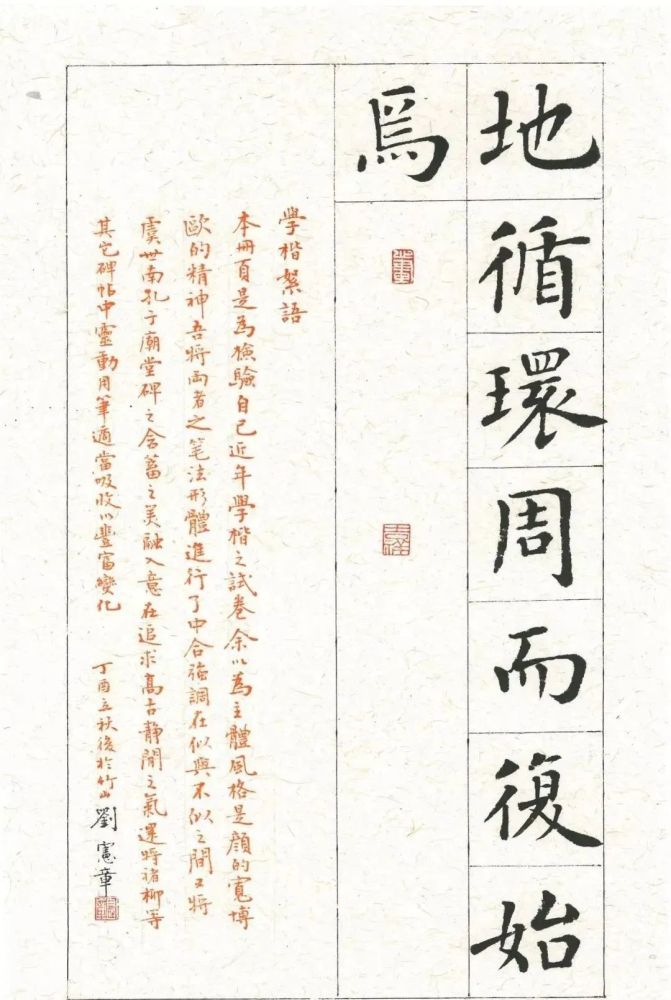 地循環周而復始
爲
學楷絮語
本冊頁是為檢驗自己近年學楷之試卷余以為主體風格是顏的寬博
歐的精神吾將兩者之笔法形體進行了中合強調在似與不似之間又將
虞世南孔子廟堂碑之含蓄之美融入意在追求高古靜閒之氣還時褚柳等
其它碑帖中靈動用筆適當吸收以豐富變化
丁酉立秋後於竹山劉憲章